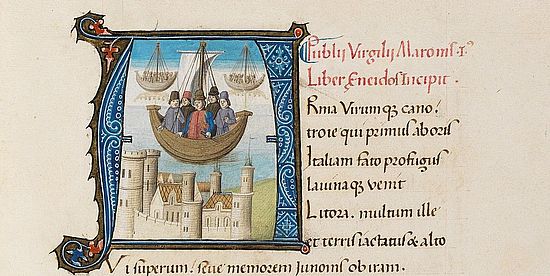 Publii Virgilii Maronis .I.
Liber Eneidos Incipit .
ARma Virumqꝫ cano.
troie qui primus ab oris
Italiam fato profugus
lauinaqꝫ venit
Litora. multum ille
et terris iactatus & alto
Vi superum. seue memorem Junonis ob iram.